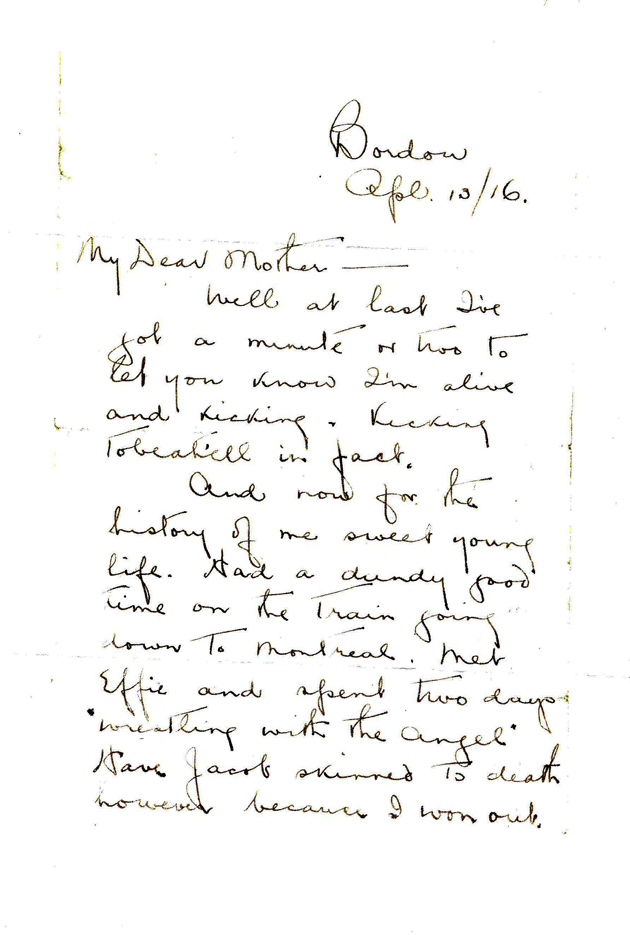 Bordon
Apl. 13/16.
My Dear Mother —
Well at last I've
got a minute or two to
let you know I'm alive
and kicking. Kicking
Tobeat'ell in fact.
And now for the
history of me sweet young
life. Had a dandy good
time on the Train going
down To Montreal. Met
Effie and spent two days
"wrestling with the Angel"
Have Jacob skinned To death
however because I won out.